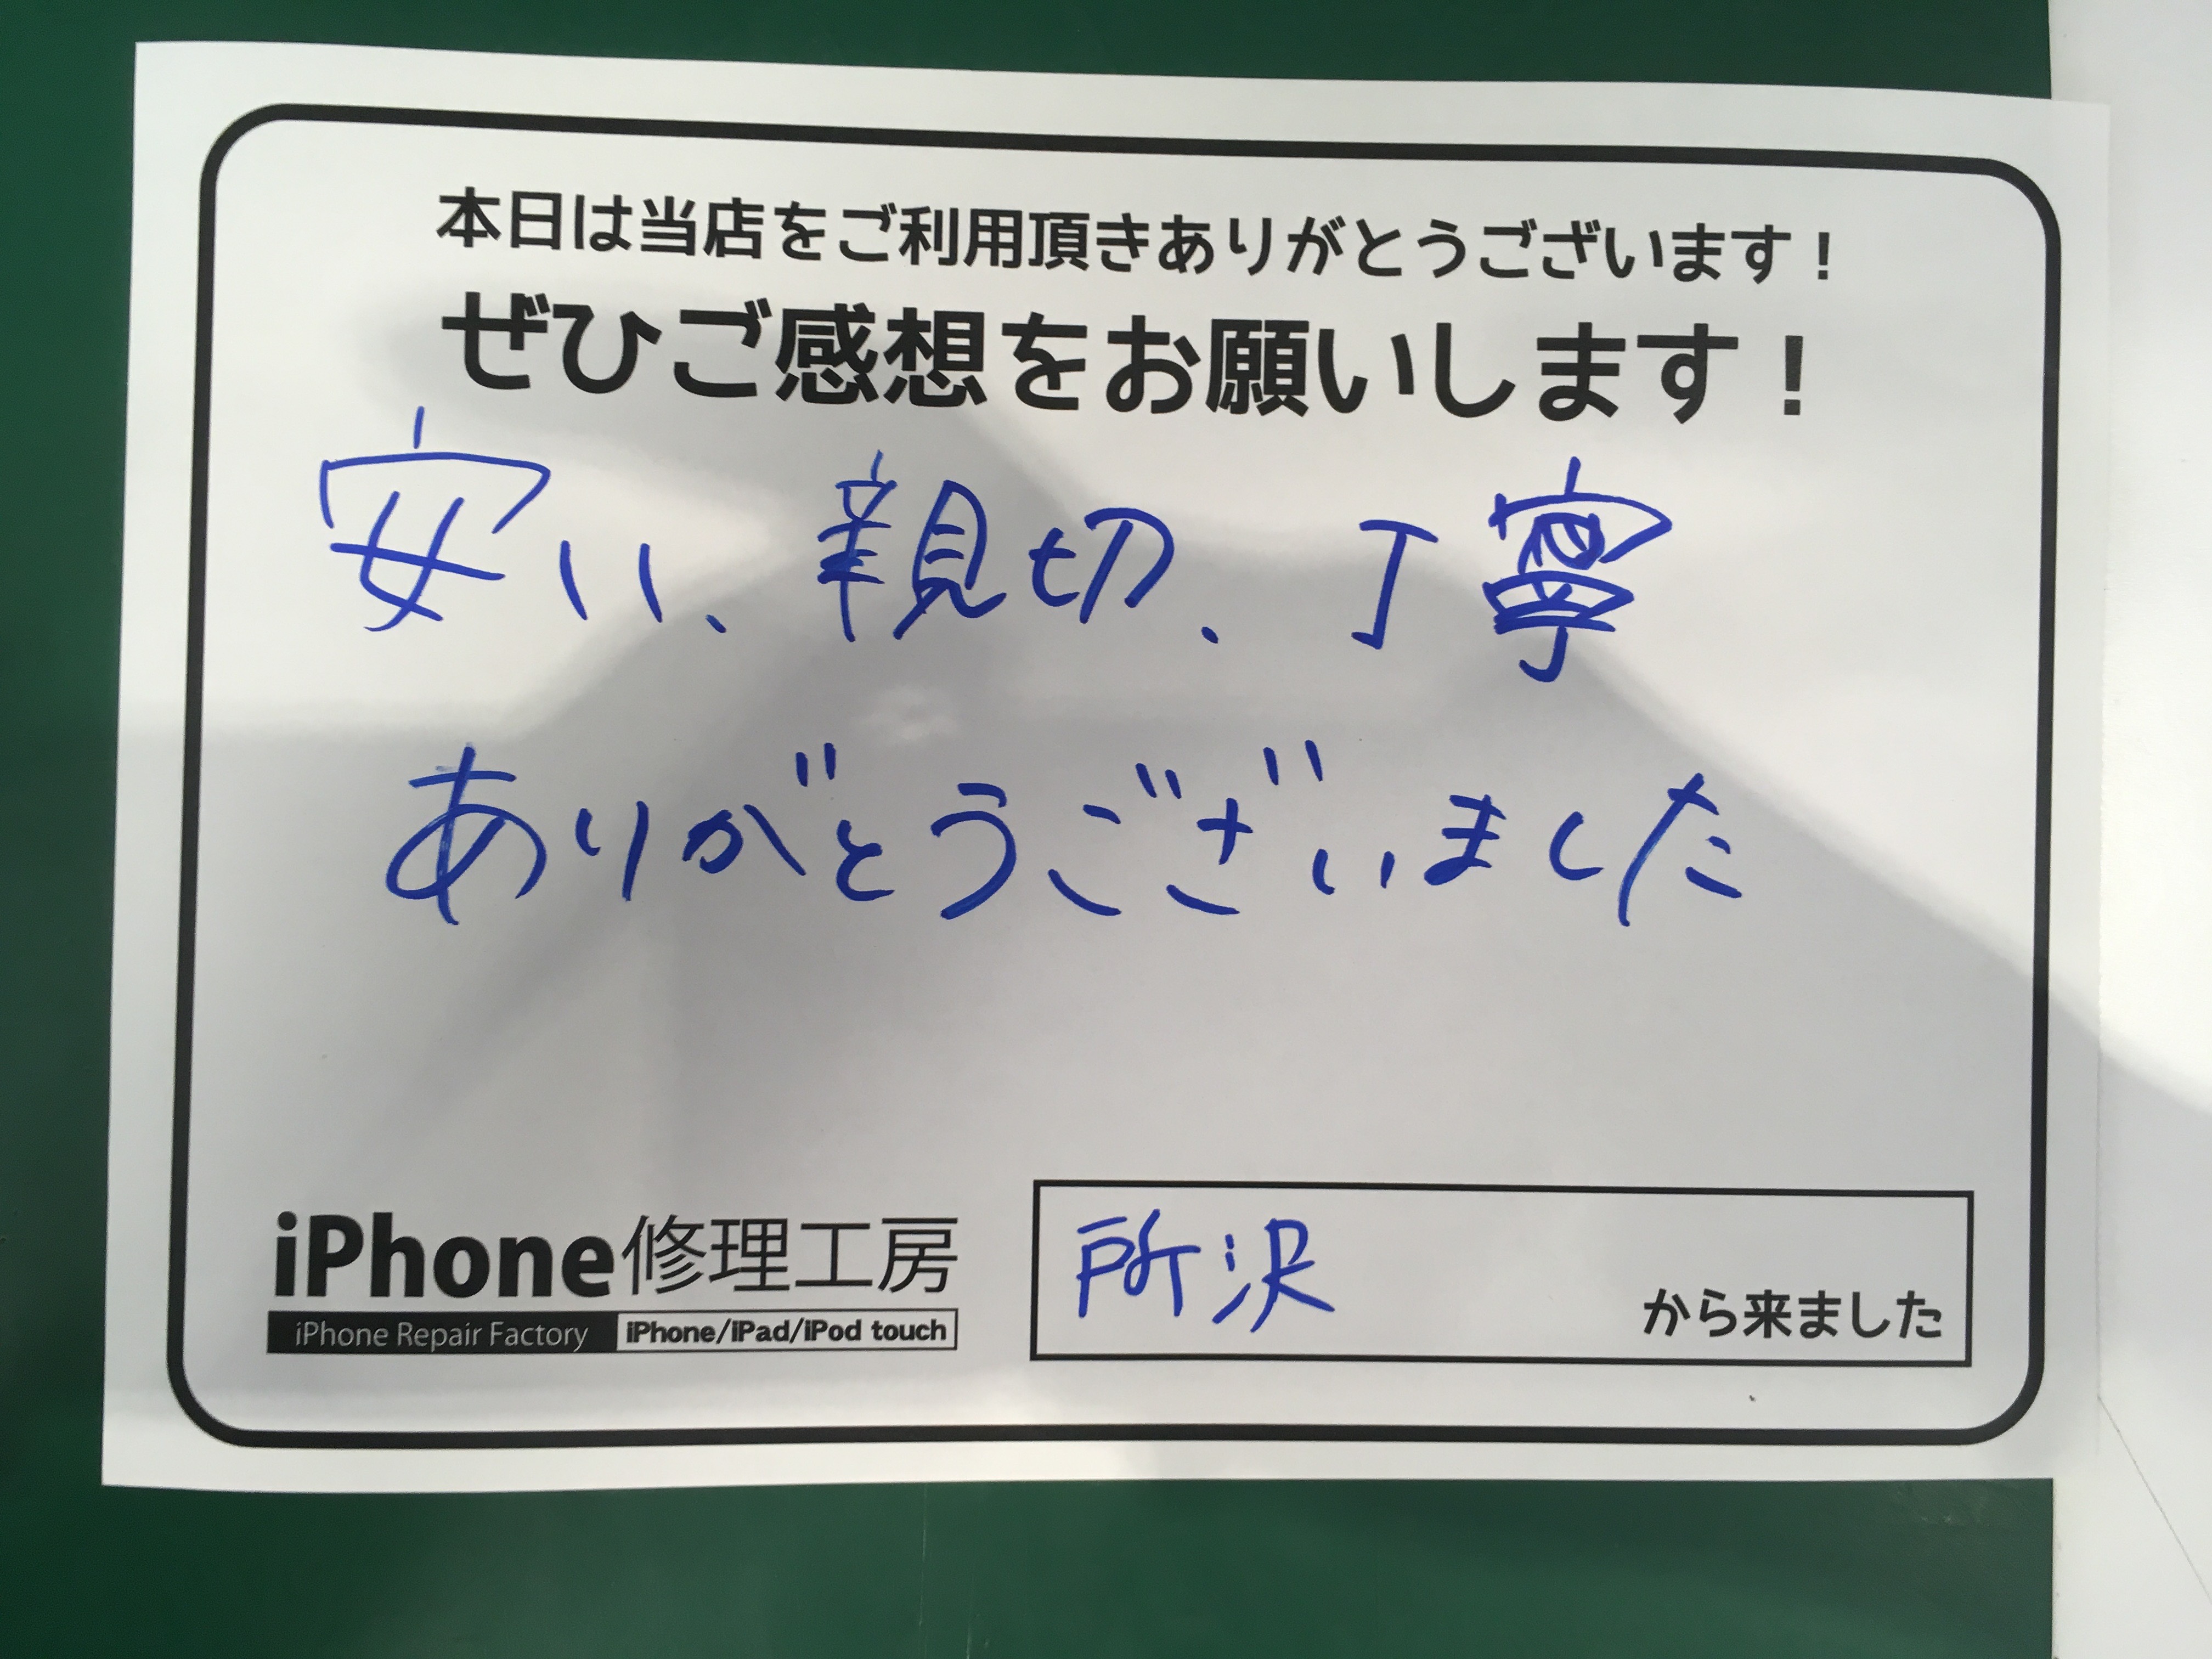 本日は当店をご利用頂きありがとうございます！
ぜひご感想をお願いします！
安い、親切、丁寧
ありがとうございました
iPhone修理工房
iPhone Repair Factory iPhone/iPad/iPod touch
所沢 から来ました